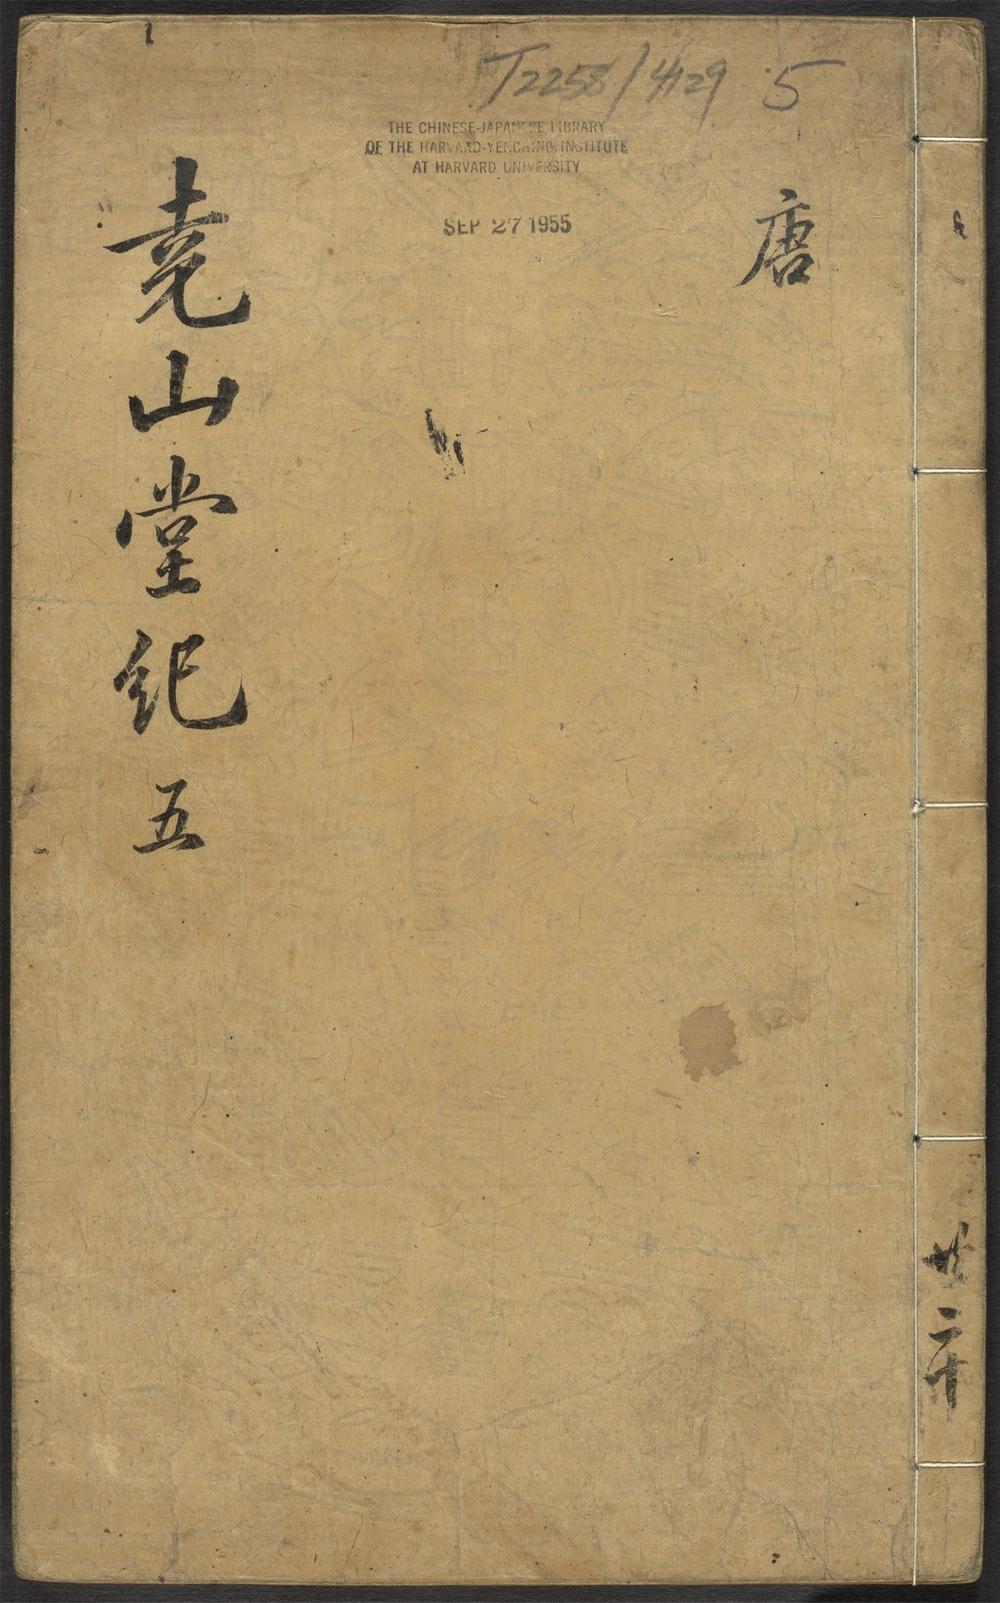 T2258/4129 5
THE CHINESE-JAPANESE LIBRARY
OF THE HARVARD-YENCHING INSTITUTE
AT HARVARD UNIVERSITY
SEP 27 1955
唐
堯山堂紀 五
共二十